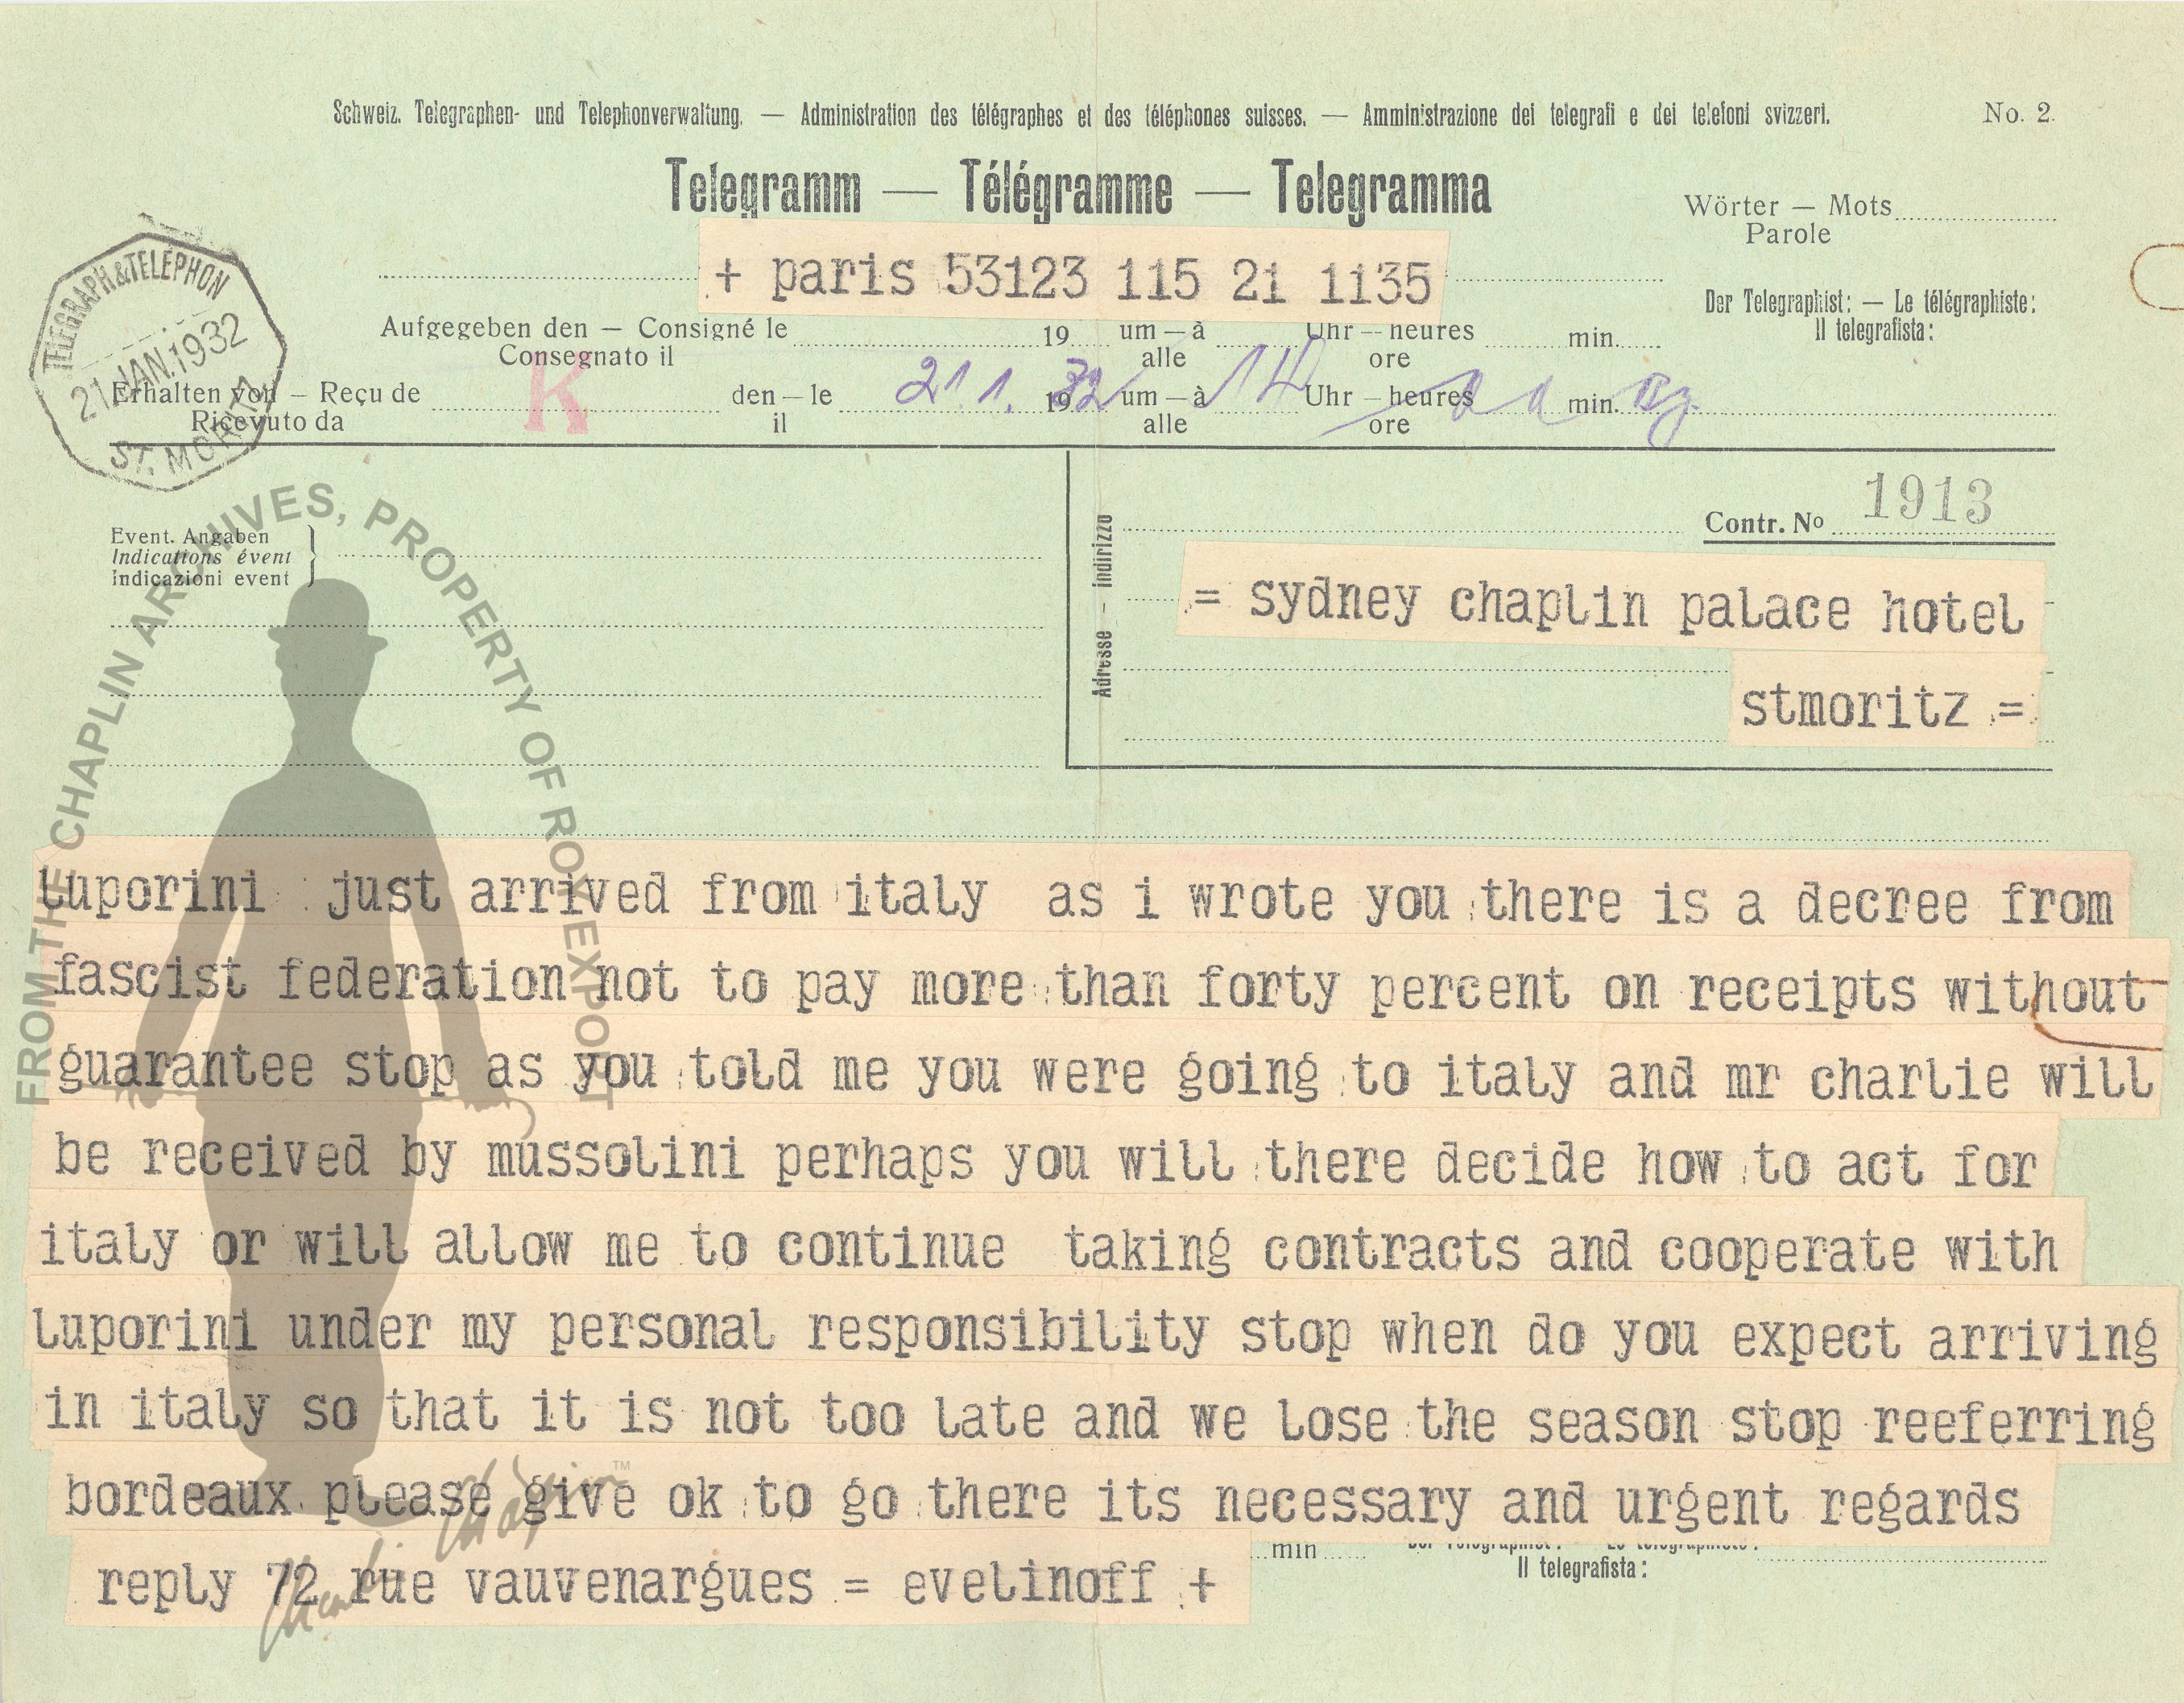 Schweiz. Telegraphen- und Telephonverwaltung. — Administration des télégraphes et des téléphones suisses. — Amministrazione dei telegrafi e dei telefoni svizzeri.
No. 2.
Telegramm — Télégramme — Telegramma
Wörter — Mots
Parole
+ paris 53123 115 21 1135
Der Telegraphist: — Le télégraphiste:
Il telegrafista:
TELEGRAPH & TELEPHON
21 JAN. 1932
ST. MORITZ
Aufgegeben den — Consigné le 19 um — à Uhr — heures min.
Consegnato il alle ore
Erhalten von — Reçu de K den — le 21. 1. 1932 um — à 14 Uhr — heures min.
Ricevuto da il alle ore
Contr. No 1913
Event. Angaben
Indications évent
Indicazioni event
Adresse — Indirizzo
= sydney chaplin palace hotel
stmoritz =
luporini just arrived from italy as i wrote you there is a decree from
fascist federation not to pay more than forty percent on receipts without
guarantee stop as you told me you were going to italy and mr charlie will
be received by mussolini perhaps you will there decide how to act for
italy or will allow me to continue taking contracts and cooperate with
luporini under my personal responsibility stop when do you expect arriving
in italy so that it is not too late and we lose the season stop reeferring
bordeaux please give ok to go there its necessary and urgent regards
reply 72 rue vauvenargues = evelinoff +
min
Il telegrafista:
FROM THE CHAPLIN ARCHIVES, PROPERTY OF ROY EXPORT
Charlie Chaplin™